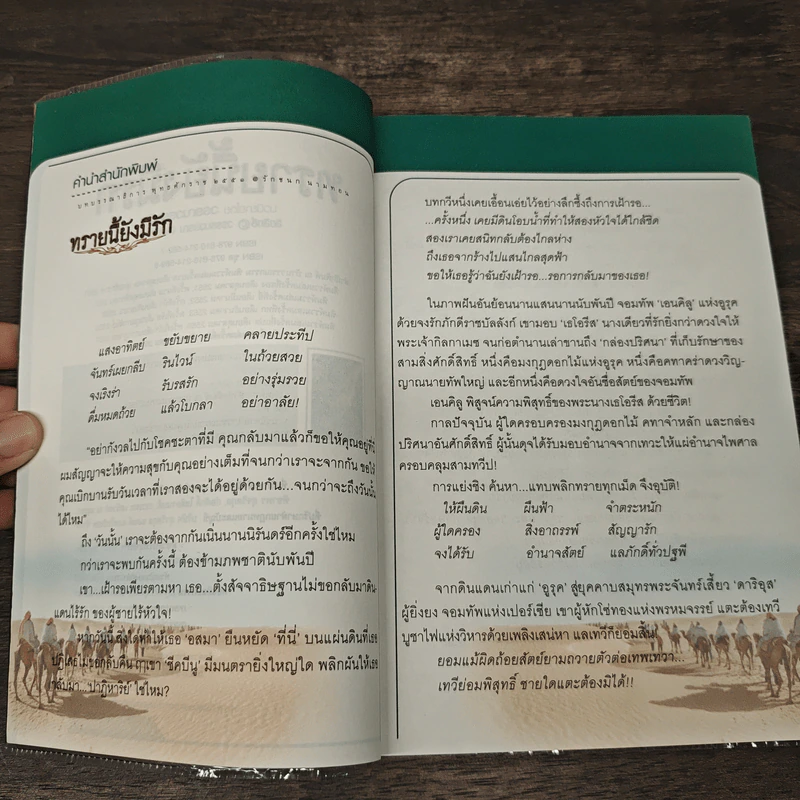 คำนำสำนักพิมพ์
บทบรรณาธิการ พุทธศักราช ๒๕๕๑ @รักชนก นามทอน
ทรายนี้ยังมีรัก
แสงอาทิตย์ ขยับขยาย คลายประทีป
จันทร์เผยกลีบ รินไวน์ ในถ้วยสวย
จงเริงร่า รับรสรัก อย่างรุ่มรวย
ดื่มหมดถ้วย แล้วโบกลา อย่าอาลัย!
"อย่ากังวลไปกับโชคชะตาที่มี คุณกลับมาแล้วก็ขอให้คุณอยู่ที่นี่
ผมสัญญาจะให้ความสุขกับคุณอย่างเต็มที่จนกว่าเราจะจากกัน ขอให้
คุณเบิกบานรับวันเวลาที่เราสองจะได้อยู่ด้วยกัน...จนกว่าจะถึงวันนั้น
ได้ไหม"
ถึง 'วันนั้น' เราจะต้องจากกันเนิ่นนานนิรันดร์อีกครั้งใช่ไหม
กว่าเราจะพบกันครั้งนี้ ต้องข้ามภพชาตินับพันปี
เขา...เฝ้ารอเพียรตามหา เธอ...ตั้งสัจจาธิษฐานไม่ขอกลับมาดิน-
แดนไร้รัก ของผู้ชายไร้หัวใจ!
หากวันนี้ สิ่งใดทำให้เธอ 'อสมา' ยืนหยัด 'ที่นี่' บนแผ่นดินที่เธอ
ปฏิเสธไม่ขอกลับคืน ฤๅเขา 'ชีคบีนู' มีมนตรายิ่งใหญ่ใด พลิกผันให้เธอ
กลับมา...'ปาฏิหาริย์' ใช่ไหม?
บทกวีหนึ่งเคยเอื้อนเอ่ยไว้อย่างลึกซึ้งถึงการเฝ้ารอ...
...ครั้งหนึ่ง เคยมีดินโอบน้ำที่ทำให้สองหัวใจได้ใกล้ชิด
สองเราเคยสนิทกลับต้องไกลห่าง
ถึงเธอจากร้างไปแสนไกลสุดฟ้า
ขอให้เธอรู้ว่าฉันยังเฝ้ารอ...รอการกลับมาของเธอ!
ในภาพฝันอันย้อนนานแสนนานนับพันปี จอมทัพ 'เอนคิลู' แห่งอูรุค
ด้วยจงรักภักดีราชบัลลังก์ เขามอบ 'เธโอรีส' นางเดียวที่รักยิ่งกว่าดวงใจให้
พระเจ้ากิลกาเมช จนก่อตำนานเล่าขานถึง 'กล่องปริศนา' ที่เก็บรักษาของ
สามสิ่งศักดิ์สิทธิ์ หนึ่งคือมงกุฎดอกไม้แห่งอูรุค หนึ่งคือคทาคร่าดวงวิญ-
ญาณนายทัพใหญ่ และอีกหนึ่งคือดวงใจอันซื่อสัตย์ของจอมทัพ
เอนคิลู พิสูจน์ความพิสุทธิ์ของพระนางเธโอรีส ด้วยชีวิต!
กาลปัจจุบัน ผู้ใดครอบครองมงกุฎดอกไม้ คทาจำหลัก และกล่อง
ปริศนาอันศักดิ์สิทธิ์ ผู้นั้นดุจได้รับมอบอำนาจจากเทวะให้แผ่อำนาจไพศาล
ครอบคลุมสามทวีป!
การแย่งชิง ค้นหา...แทบพลิกทรายทุกเม็ด จึงอุบัติ!
ให้ผืนดิน ผืนฟ้า จำตระหนัก
ผู้ใดครอง สิ่งอาถรรพ์ สัญญารัก
จงได้รับ อำนาจสัตย์ แลภักดิ์ทั่วปฐพี
จากดินแดนเก่าแก่ 'อูรุค' สู่ยุคคาบสมุทรพระจันทร์เสี้ยว 'ดาริอุส'
ผู้ยิ่งยง จอมทัพแห่งเปอร์เซีย เขาผู้หักโซ่ทองแห่งพรหมจรรย์ แตะต้องเทวี
บูชาไฟแห่งวิหารด้วยเพลิงเสน่หา แลเทวีก็ยอมสิ้น!
ยอมแม้ผิดถ้อยสัตย์ยามถวายตัวต่อเทพเทวา...
เทวีย่อมพิสุทธิ์ ชายใดแตะต้องมิได้!!